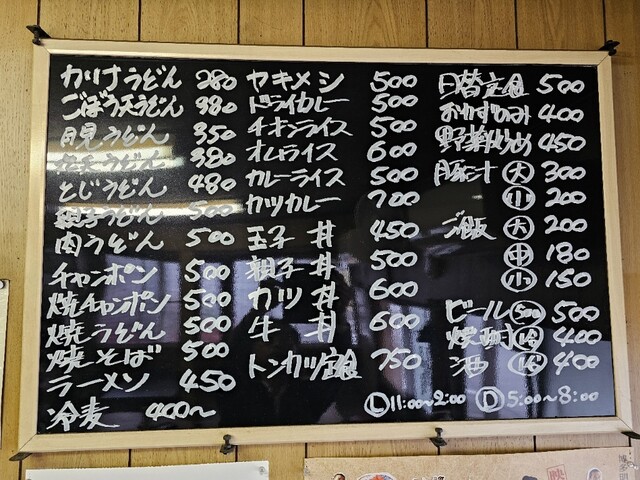 かけうどん 280
ごぼう天うどん 380
月見うどん 350
天うどん 380
とじうどん 480
親子うどん 500
肉うどん 500
チャンポン 500
焼チャンポン 500
焼うどん 500
焼そば 500
ラーメン 450
冷麦 400〜
ヤキメシ 500
ドライカレー 500
チキンライス 500
オムライス 600
カレーライス 500
カツカレー 700
玉子丼 450
親子丼 500
カツ丼 600
牛丼 600
トンカツ定食 750
日替定食 500
おかずのみ 400
野菜炒め 450
豚汁 大 300
小 200
ご飯 大 200
中 180
小 150
ビール 500 500
焼酎 400
酒 400
L 11:00~2:00 D 5:00~8:00